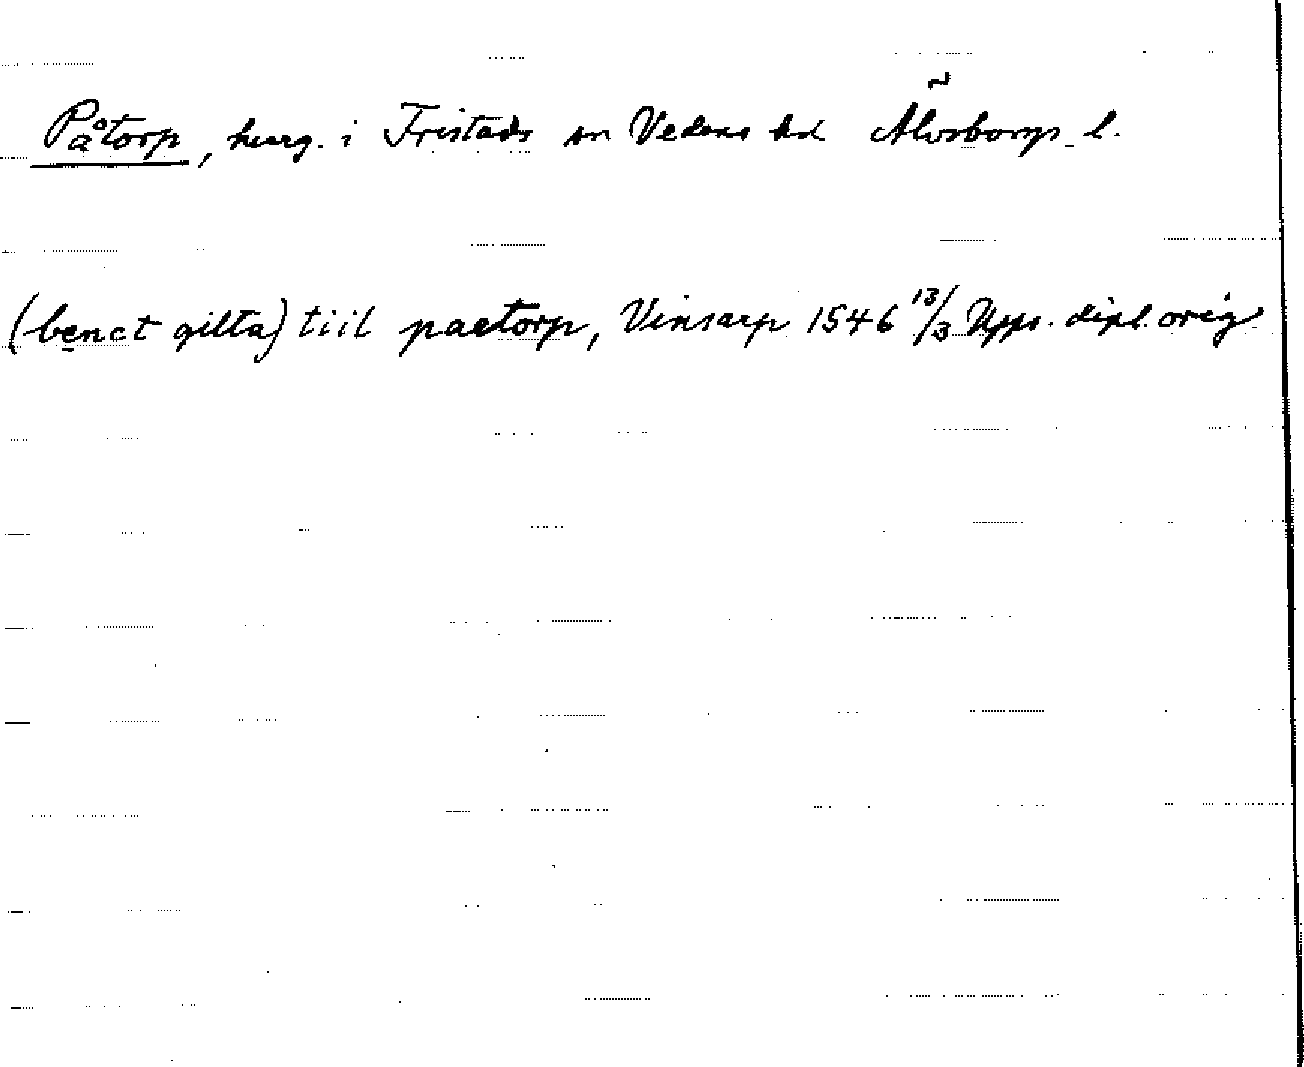 Påtorp, herg. i Fristads sn Vedens hd Älvsborgs l.
(benct gilta) tiil paetorp, Vinsarp 1546 13/3 Upps. dipl. orig